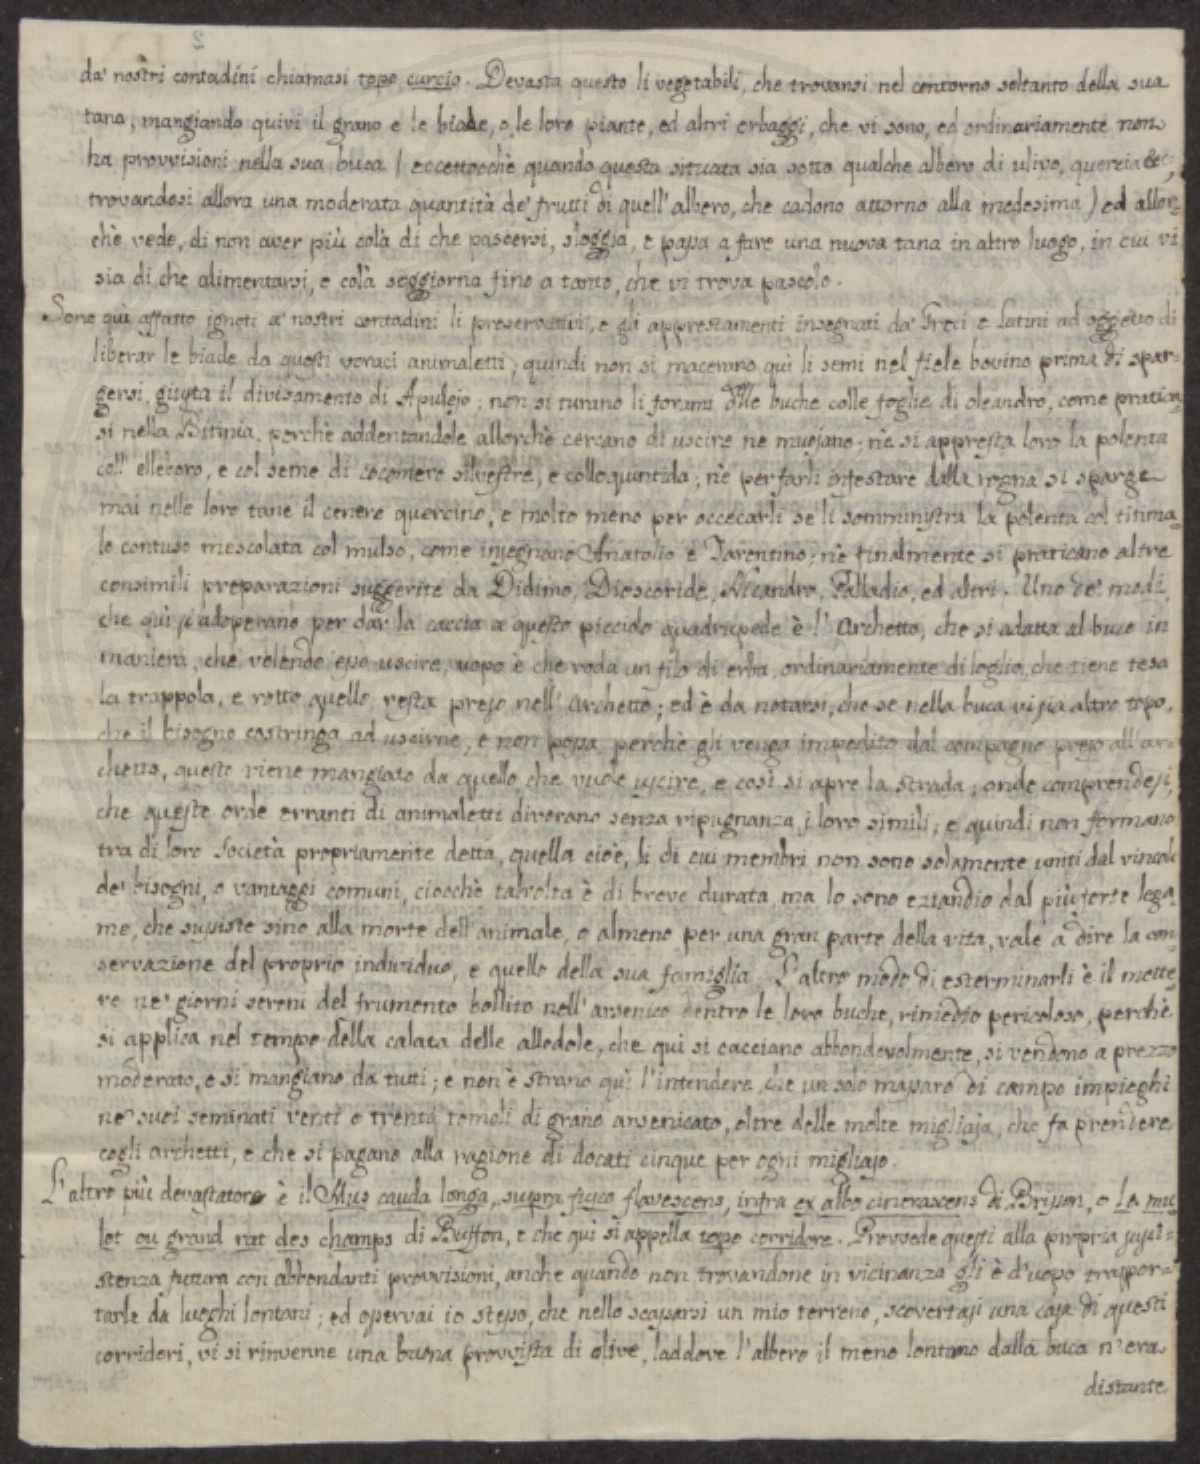 da' nostri contadini chiamasi topo curcio. Devasta questo li vegetabili, che trovansi nel contorno soltanto della sua
tana, mangiando quivi il grano e le biade, o le loro piante, ed altri erbaggi, che vi sono, ed ordinariamente non
ha provvisioni nella sua buca ( eccettocchè quando questa situata sia sotto qualche albero di ulivo, quercia &c;
trovandosi allora una moderata quantità de' frutti di quell'albero, che cadono attorno alla medesima ) ed allor-
chè vede, di non aver più colà di che pascersi, sloggia, e passa a fare una nuova tana in altro luogo, in cui vi
sia di che alimentarsi, e colà soggiorna fino a tanto, che vi trova pascolo.
Sono quì affatto ignoti a' nostri contadini li preservativi, e gli apprestamenti insegnati da' Greci e Latini ad oggetto di
liberar le biade da questi voraci animaletti; quindi non si macerano quì li semi nel fiele bovino prima di spar=
gersi, giusta il divisamento di Apulejo; non si turano li forami delle buche colle foglie di oleandro, come pratica-
si nella Bitinia, perchè addentandole allorchè cercano di uscire ne muojano; nè si appresta loro la polenta
coll' elleboro, e col seme di cocomero silvestre, e colloquintida; nè per farli infestare dalla rogna si sparge
mai nelle loro tane il cenere quercino, e molto meno per accecarli se li somministra la polenta col titima-
lo contuso mescolata col mulso, come insegnano Anatolio e Tarentino; nè finalmente si praticano altre
consimili preparazioni suggerite da Didimo, Dioscoride, Nicandro, Palladio, ed altri. Uno de' modi,
che quì si adoperano per dar la caccia a questo picciolo quadrupede è l' Archetto, che si adatta al buco in
maniera, che volendo esso uscire, uopo è che roda un filo di erba, ordinariamente di loglio, che tiene tesa
la trappola, e rotto quello resta preso nell' Archetto; ed è da notarsi, che se nella buca vi sia altro topo,
che il bisogno costringa ad uscirne, e non possa, perchè gli venga impedito dal compagno preso all'ar-
chetto, questi viene mangiato da quello che vuole uscire, e così si apre la strada; onde comprendesi,
che queste orde erranti di animaletti divorano senza ripugnanza i loro simili; e quindi non formano
tra di loro Società propriamente detta, quella cioè, li di cui membri non sono solamente uniti dal vincolo
de' bisogni, o vantaggi comuni, ciocchè talvolta è di breve durata, ma lo sono eziandio dal più forte lega-
me, che sussiste sino alla morte dell'animale, o almeno per una gran parte della vita, vale a dire la con-
servazione del proprio individuo, e quello della sua famiglia. L'altro modo di esterminarli è il mette-
re ne' giorni sereni del frumento bollito nell' arsenico dentro le loro buche, rimedio pericoloso, perchè
si applica nel tempo della calata delle allodole, che quì si cacciano abbondevolmente, si vendono a prezzo
moderato, e si mangiano da tutti; e non è strano quì l'intendere che un solo massaro di campo impieghi
ne' suoi seminati venti o trenta tomoli di grano arsenicato, oltre delle molte migliaja, che fa prendere
cogli archetti, e che si pagano alla ragione di docati cinque per ogni migliajo.
L'altro più devastatore è il Mus cauda longa, supra fusco flavescens, infra ex albo cinerascens di Brisson, o Le mu
lot ou grand rat des champs di Buffon, e che quì si appella topo corridore. Provvede questi alla propria sussi=
stenza futura con abbondanti provvisioni, anche quando non trovandone in vicinanza gli è d'uopo traspor=
tarle da luoghi lontani; ed osservai io stesso, che nello scassarsi un mio terreno, scovertasi una casa di questi
corridori, vi si rinvenne una buona provvista di olive, laddove l'albero il meno lontano dalla buca n'era
distante